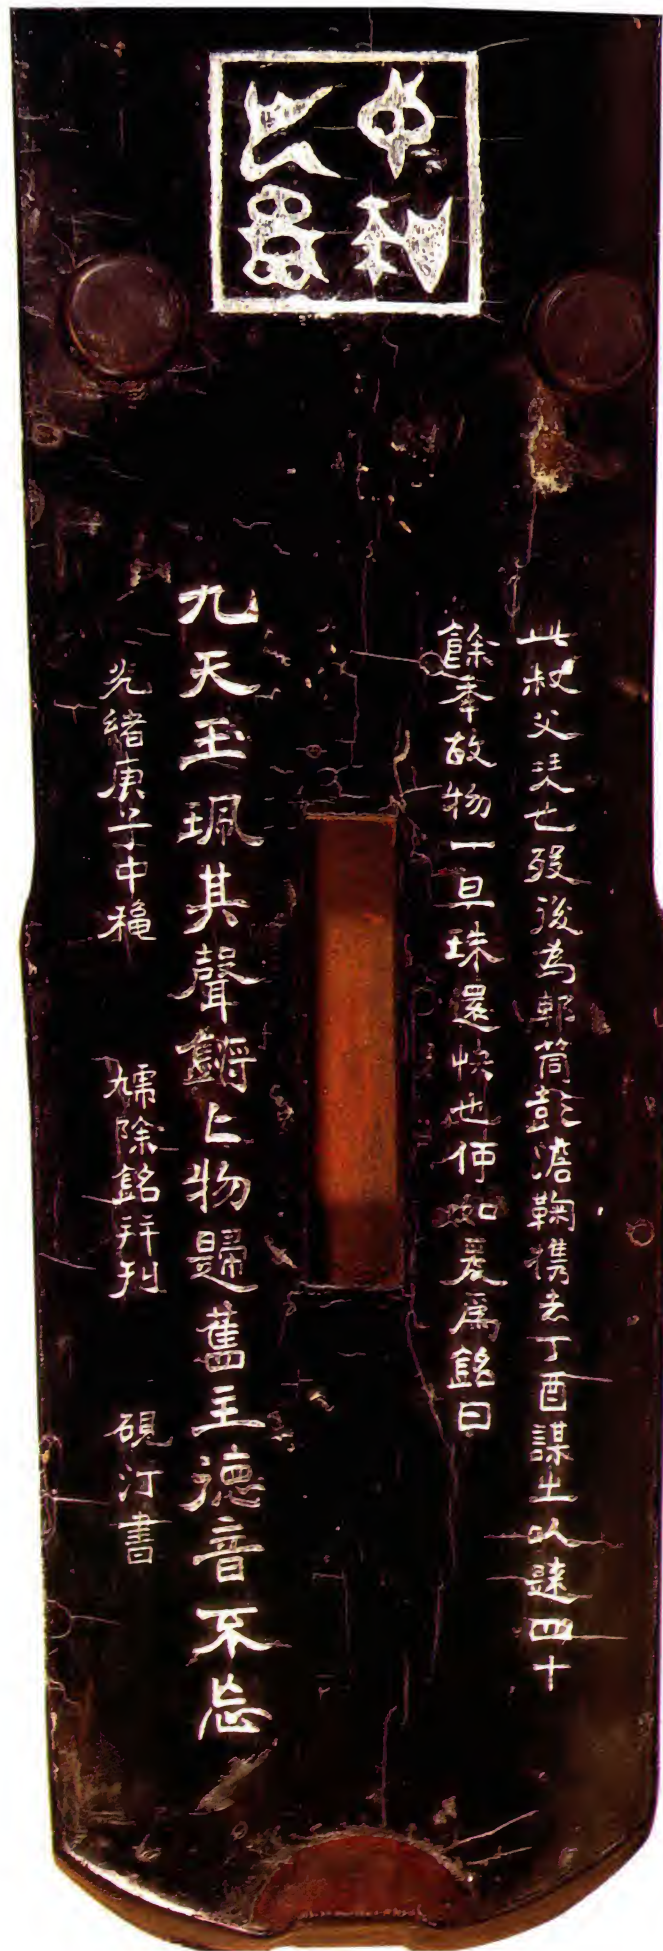 中和之器
此叔父琴也歿後為郫筒彭澹鞠攜去丁酉謀之以歸四十
餘年故物一旦珠還快也何如爰為銘曰
九天玉珮其聲鏘〻物歸舊主德音不忘
光緒庚子中穐 孺除銘并刊 硯汀書